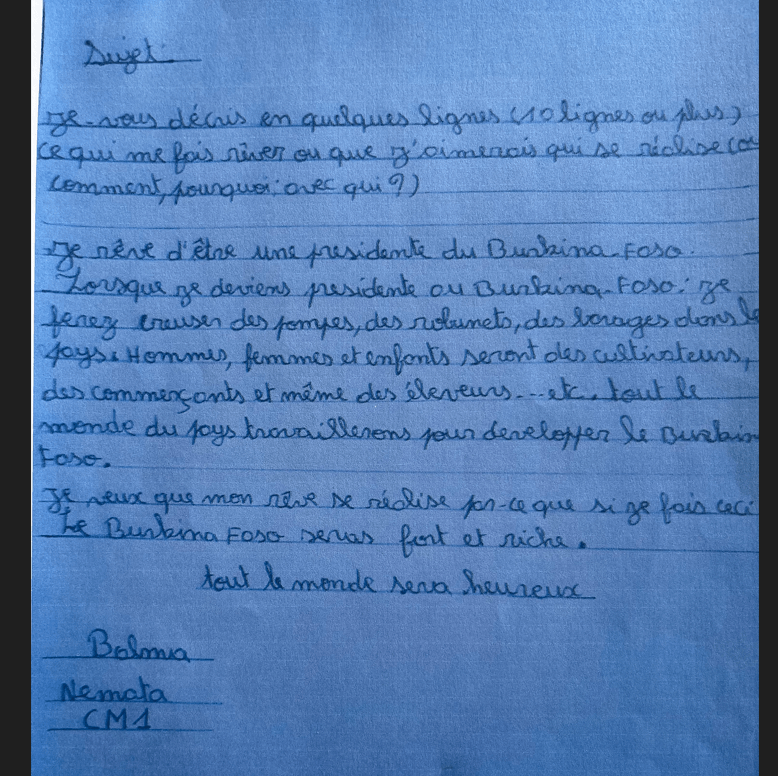 Sujet:
Je vous décris en quelques lignes (10 lignes ou plus)
ce qui me fais rêver ou que j'aimerais qui se réalise (ou
comment, pourquoi; avec qui?)
Je rêve d'être une presidente du Burkina Faso.
Lorsque je deviens presidente au Burkina-Faso; je
ferez creuser des pompes, des robinets, des barages dans le
pays. Hommes, femmes et enfants seront des cultivateurs,
des commerçants et même des éleveurs...etc. tout le
monde du pays travaillerons pour developper le Burkin
Faso.
Je veux que mon rêve se réalise par-ce que si je fais ceci
Le Burkina Faso seras fort et riche.
tout le monde sera heureux
Nemata
CM1